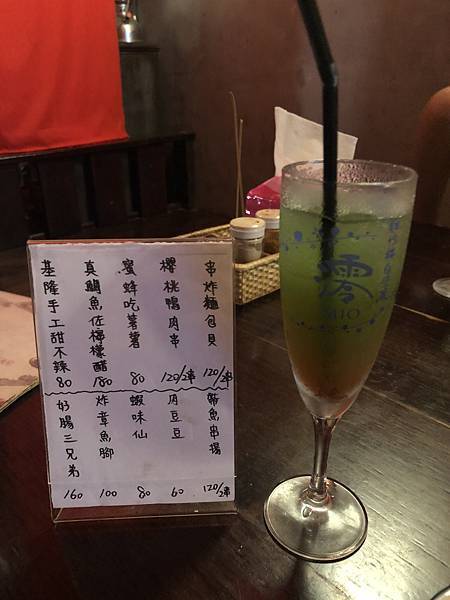 串炸麵包貝 120/2串
櫻桃鴨肉串 120/2串
蜜蜂吃薯薯 80
真鯛魚佐檸檬醋 180
基隆手工甜不辣 80
帶魚串揚 120/2串
肉豆豆 60
蝦味仙 80
炸章魚腳 100
好腸三兄弟 160
澪
MIO